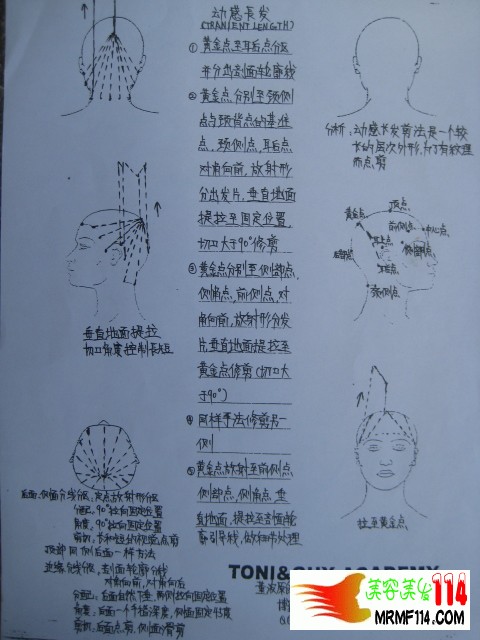 动感长发
(TRANIENT LENGTH)
① 黄金点至耳后点分区
并分出剖面轮廓线
② 黄金点分别至颈侧
点与颈背点的基准
点,颈侧点,耳后点
对角向前,放射形
分出发片,垂直地面
提拉至固定位置,
切口大于90°修剪
③ 黄金点分别至侧部点,
侧角点,前侧点,对
角向前,放射形分发
片,垂直地面提拉至
黄金点修剪(切口大
于90°)
④ 同样手法修剪另一
侧
⑤ 黄金点放射至前侧点,
侧部点,侧角点,垂
直地面,提拉至
引导线,做细节处理
垂直地面提拉
切口角度控制长短
后面,侧面分线位,定点放射形位
分配,90°拉向固定位置
角度,90°拉向固定位置
剪切,长和短幼度点剪
顶部同侧后面一样方法
边缘分线位,剖面轮廓分线
对角向前,对角向后
分配,后面自然下垂,两侧拉向固定位置
角度,后面一个手指深度,侧面固定45度
剪切,后面点剪,侧面滑剪
分析:动感长发剪法是一个较
长的层次外形,为了有纹理
而点剪
顶点
黄金点
前侧点
中心点
耳上点
耳后点
颈侧点
拉至黄金点
TONI&GUY ACADEMY
美容美发114
MRMF114.COM